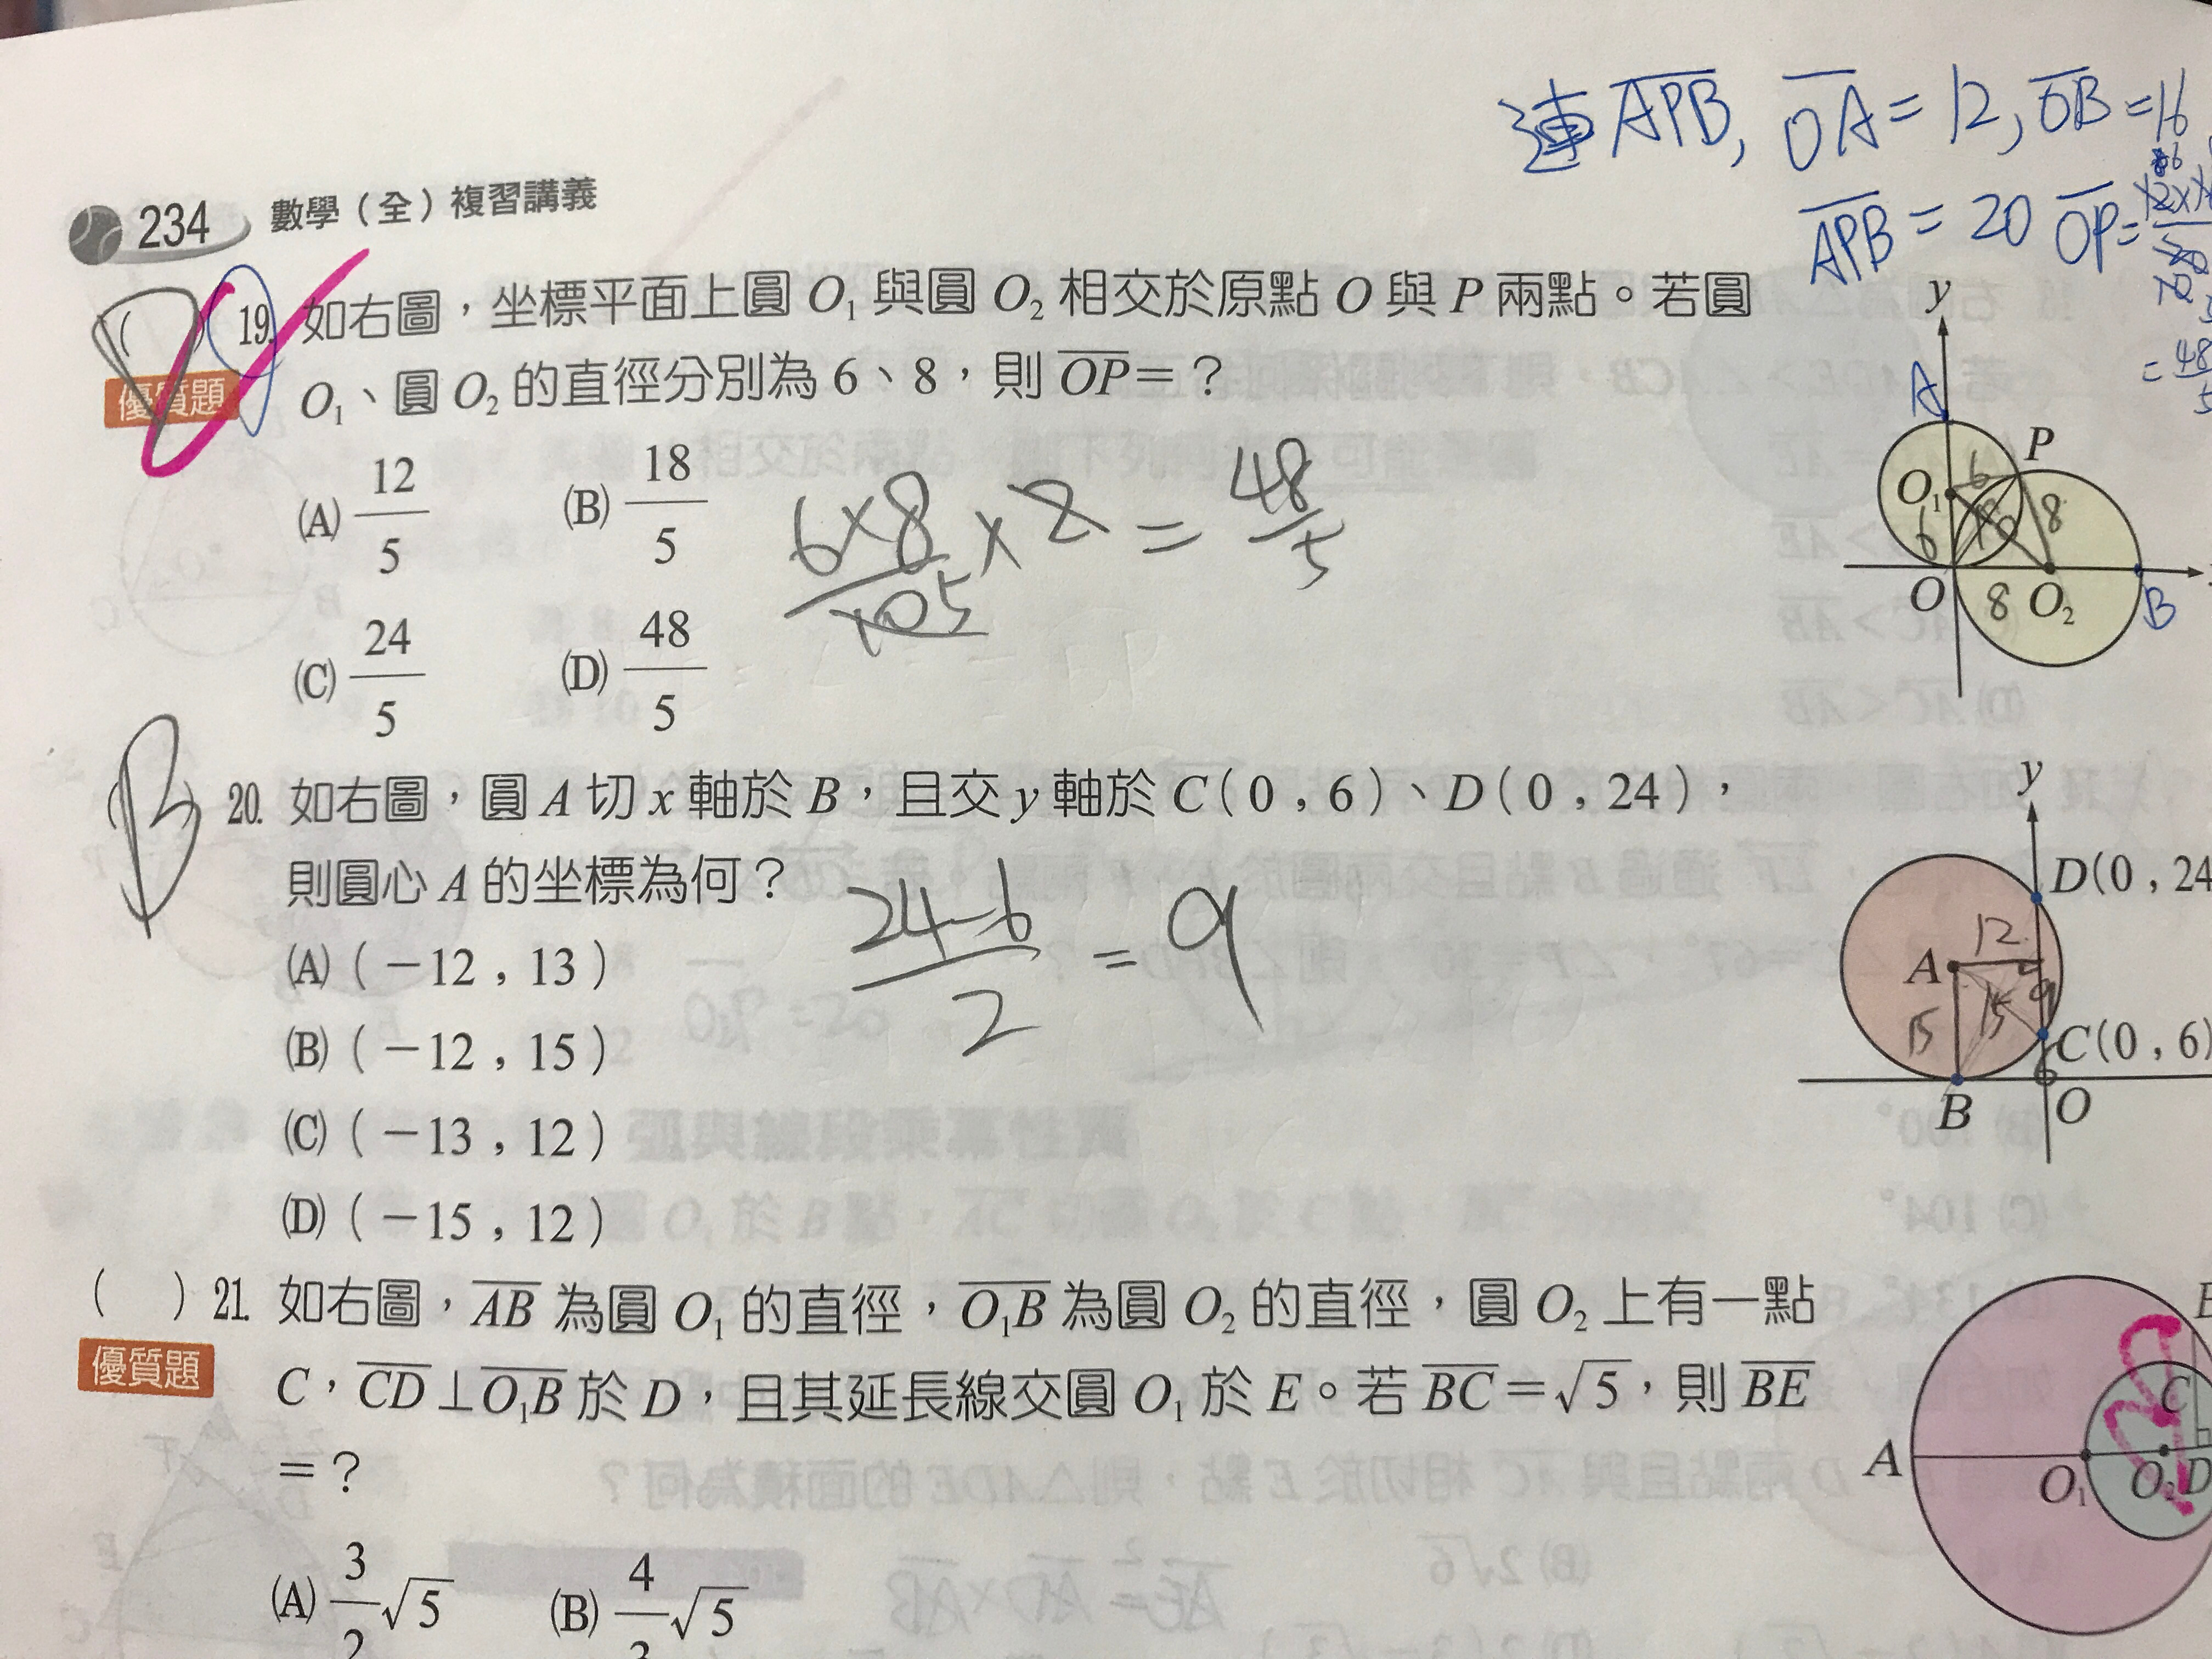 連 APB, OA = 12, OB = 16
APB = 20 OP =
= 48/5
234 數學（全）複習講義
D
19. 如右圖，坐標平面上圓 O₁ 與圓 O₂ 相交於原點 O 與 P 兩點。若圓
優質題
O₁、圓 O₂ 的直徑分別為 6、8，則 OP＝？
(A) 12/5 (B) 18/5
(C) 24/5 (D) 48/5
6×8/10 5 × 2 = 48/5
y
A
P
O₁ 6 8
6
O 8 O₂ B
B
20. 如右圖，圓 A 切 x 軸於 B，且交 y 軸於 C（0，6）、D（0，24），
則圓心 A 的坐標為何？
24-6/2 = 9
(A)（－12，13）
(B)（－12，15）
(C)（－13，12）
(D)（－15，12）
y
D(0，24
12
A
9
15 15
C(0，6)
6
B O
( ) 21. 如右圖，AB 為圓 O₁ 的直徑，O₁B 為圓 O₂ 的直徑，圓 O₂ 上有一點
優質題
C，CD⊥O₁B 於 D，且其延長線交圓 O₁ 於 E。若 BC＝√5，則 BE
＝？
(A) 3/2 √5 (B) 4/3 √5
E
C
A O₁ O₂ D